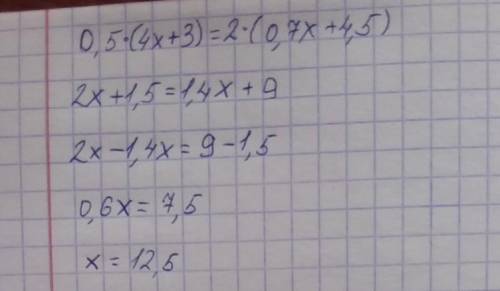 0,5·(4x+3)=2·(0,7x+4,5)
2x+1,5=1,4x+9
2x-1,4x=9-1,5
0,6x=7,5
x=12,5